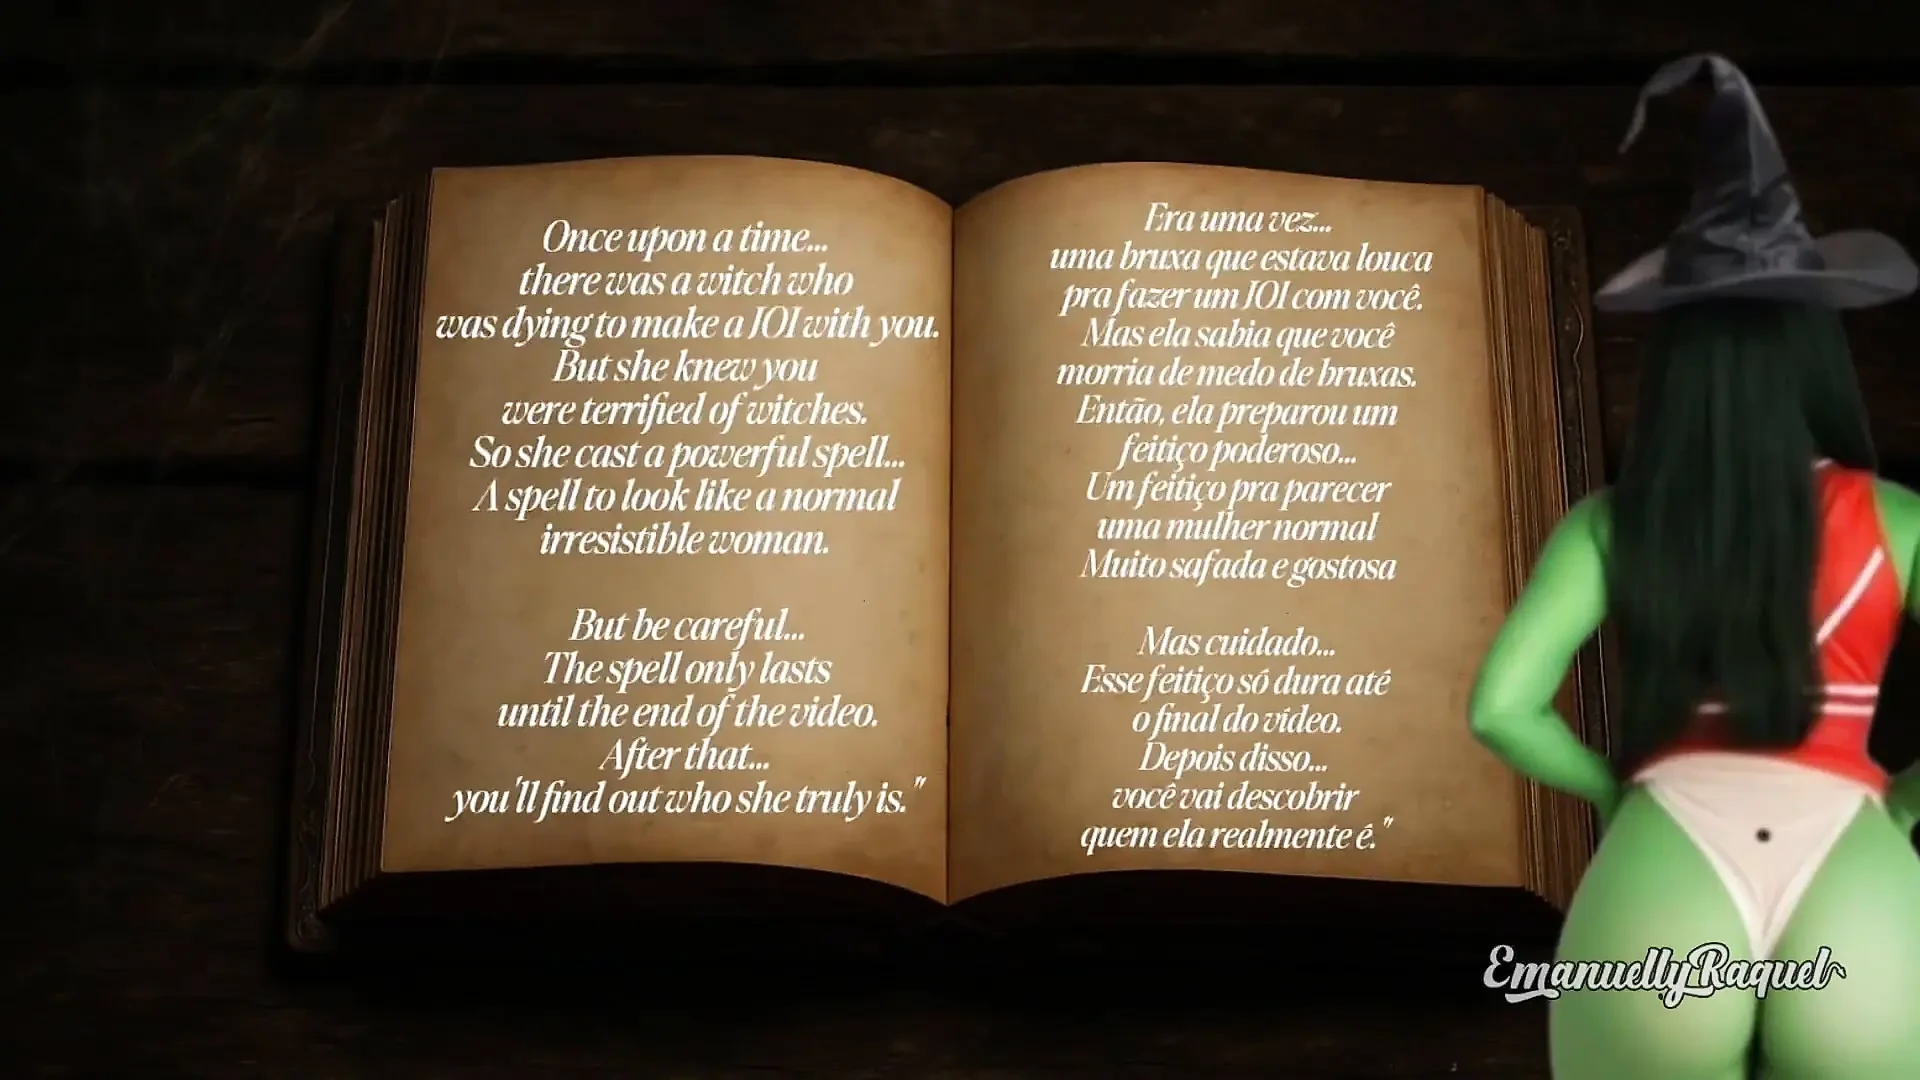 Once upon a time...
there was a witch who
was dying to make a JOI with you.
But she knew you
were terrified of witches.
So she cast a powerful spell...
A spell to look like a normal
irresistible woman.
But be careful...
The spell only lasts
until the end of the video.
After that...
you'll find out who she truly is."
Era uma vez...
uma bruxa que estava louca
pra fazer um JOI com você.
Mas ela sabia que você
morria de medo de bruxas.
Então, ela preparou um
feitiço poderoso...
Um feitiço pra parecer
uma mulher normal
Muito safada e gostosa
Mas cuidado...
Esse feitiço só dura até
o final do vídeo.
Depois disso...
você vai descobrir
quem ela realmente é."
EmanuellyRaquel